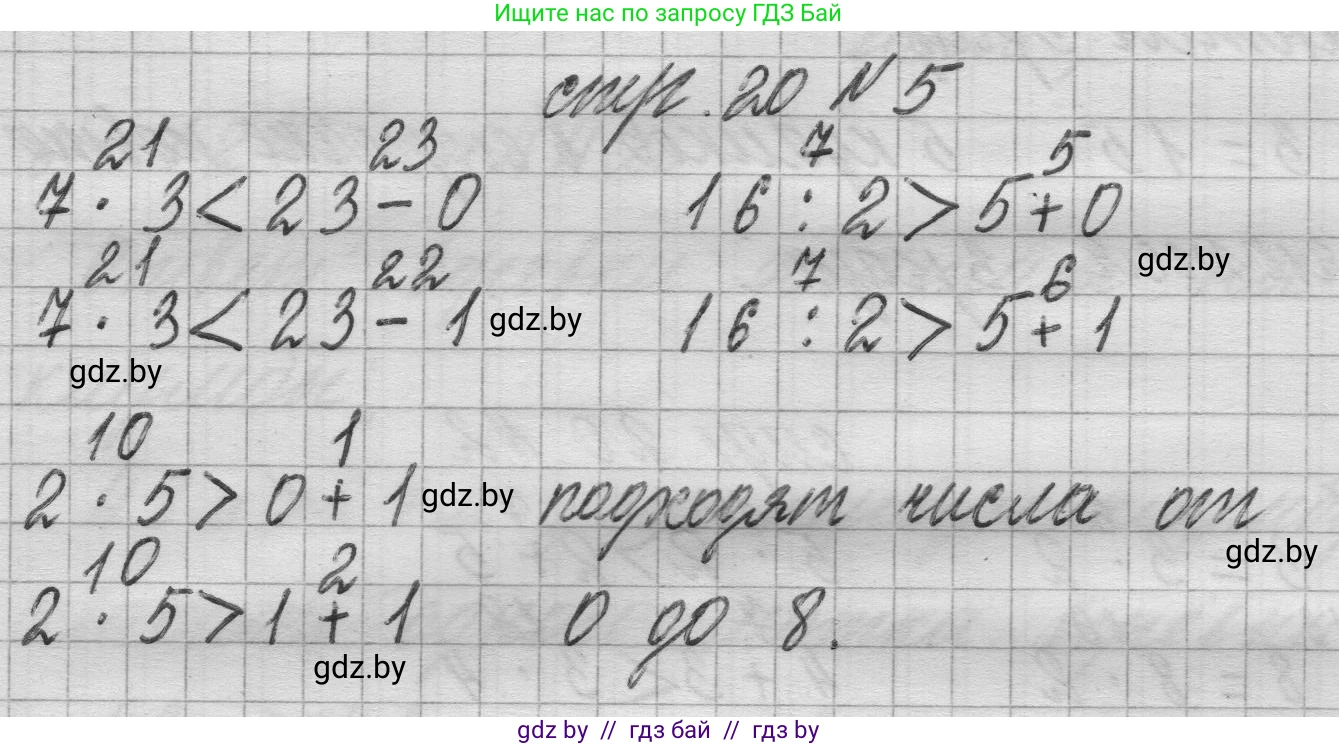 Ищите нас по запросу ГДЗ Бай
стр. 20 № 5
21 23 7 5
7 · 3 < 23 - 0 16 : 2 > 5 + 0
gdz.by
21 22 7 6
7 · 3 < 23 - 1 gdz.by 16 : 2 > 5 + 1
gdz.by
10 1
2 · 5 > 0 + 1 gdz.by подходят числа от
gdz.by
10 2
2 · 5 > 1 + 1 0 до 8.
gdz.by
gdz by // гдз бай // гдз by